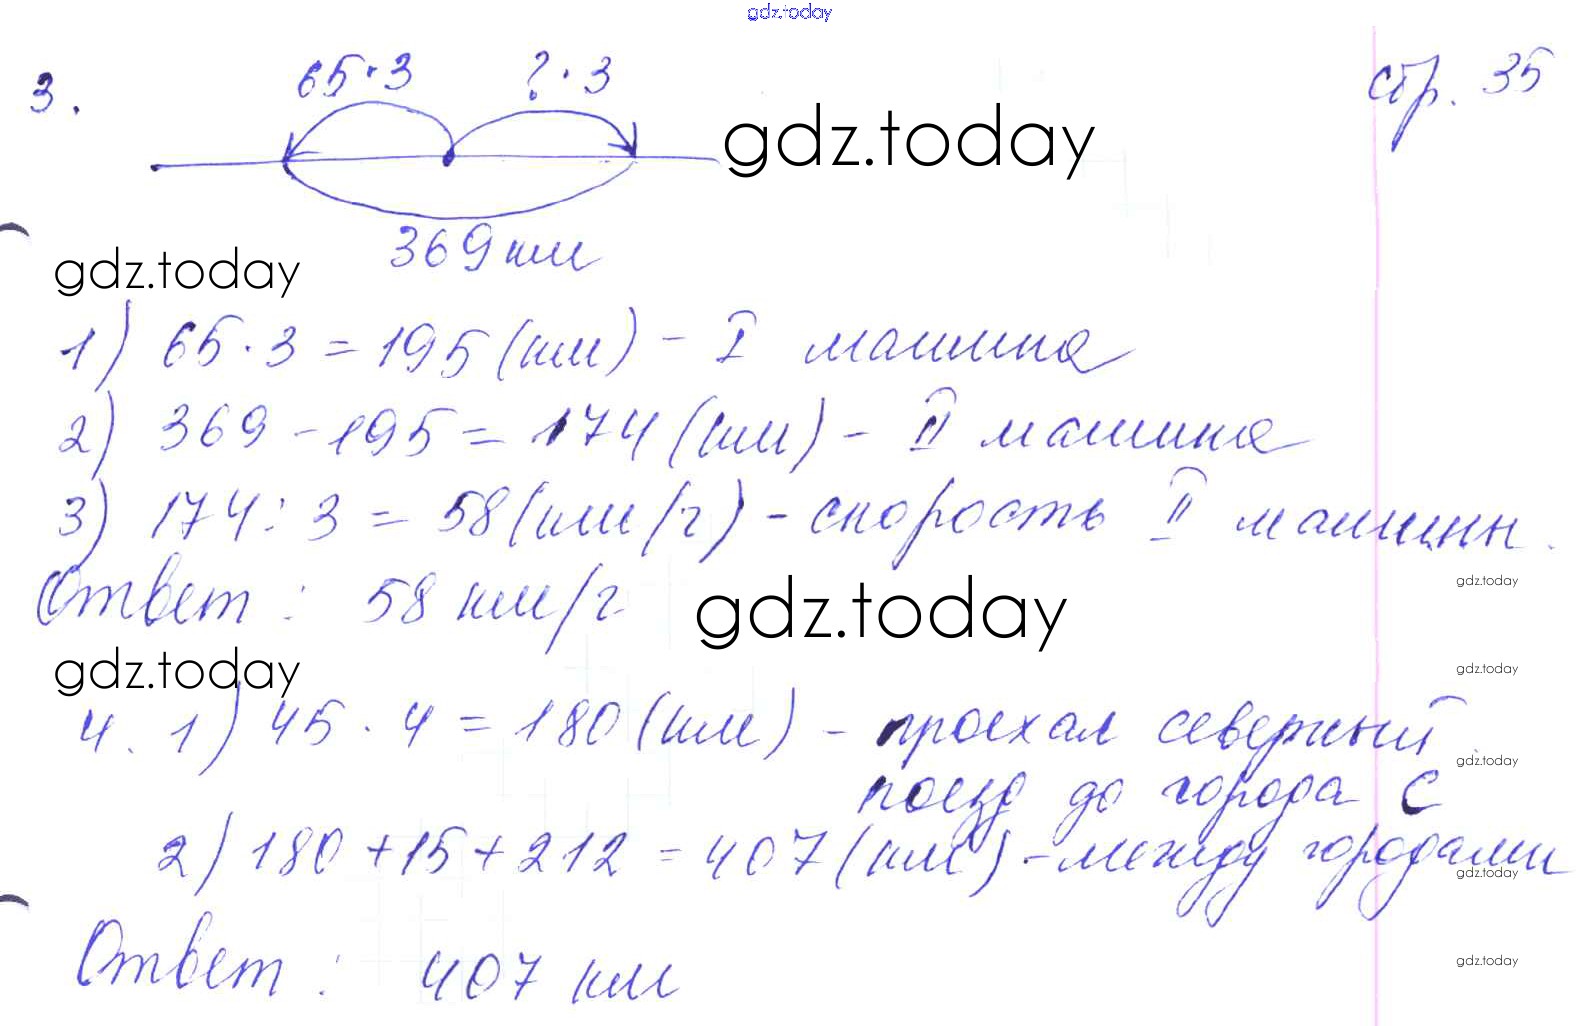 gdz.today
3. 65·3 ?·3 стр. 35
gdz.today
369 км
gdz.today
1) 65·3=195 (км) - I машина
2) 369-195=174 (км) - II машина
3) 174:3=58 (км/г) - скорость II машины.
Ответ: 58 км/г
gdz.today
gdz.today
gdz.today
gdz.today
4. 1) 45·4=180 (км) - проехал северный
gdz.today
поезд до города С
2) 180+15+212=407 (км) - между городами
gdz.today
Ответ: 407 км
gdz.today